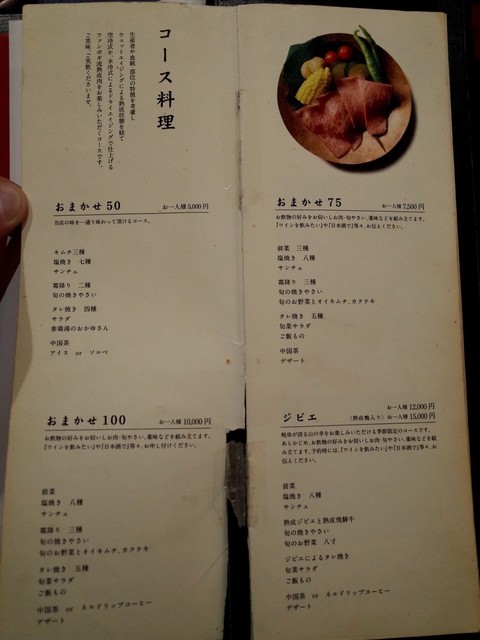 コース料理
生産者や血統、部位の特徴を考慮し
ウェットエイジングによる熟成状態を経て
空冷式か、氷冷式によるドライエイジングで仕上げる
ワァンボギ流熟成肉をお楽しみいただくコースです。
ご賞味、ご笑飲くださいませ。
おまかせ 50 お一人様 5,000 円
当店の味を一通り味わって頂けるコース。
キムチ三種
塩焼き 七種
サンチュ
霜降り 二種
旬の焼きやさい
タレ焼き 四種
サラダ
参鶏湯のおかゆさん
中国茶
アイス or ソルベ
おまかせ 100 お一人様 10,000 円
お飲物の好みをお伺いしお肉・旬やさい、薬味などを組み立てます。
『ワインを飲みたい』や『日本酒で』等々、お申し付けください。
前菜
塩焼き 八種
サンチュ
霜降り 三種
旬の焼きやさい
旬のお野菜とオイキムチ、カクテキ
タレ焼き 五種
旬菜サラダ
ご飯もの
中国茶 or ネルドリップコーヒー
デザート
おまかせ 75 お一人様 7,500 円
お飲物の好みをお伺いしお肉・旬やさい、薬味などを組み立てます。
『ワインを飲みたい』や『日本酒で』等々、お伝えください。
前菜 三種
塩焼き 八種
サンチュ
霜降り 三種
旬の焼きやさい
旬のお野菜とオイキムチ、カクテキ
タレ焼き 五種
旬菜サラダ
ご飯もの
中国茶
デザート
ジビエ お一人様 12,000 円
(熟成鴨入り) お一人様 15,000 円
岐阜が誇る山の幸をお楽しみいただける季節限定のコースです。
あらかじめ、お飲物の好みをお伺いしお肉・旬やさい、薬味などを組
み立てます。予約時には、『ワインを飲みたい』や『日本酒で』等々、お
伝えください。
前菜
塩焼き 八種
サンチュ
熟成ジビエと熟成飛騨牛
旬の焼きやさい
旬のお野菜 八寸
ジビエによるタレ焼き
旬菜サラダ
ご飯もの
中国茶 or ネルドリップコーヒー
デザート